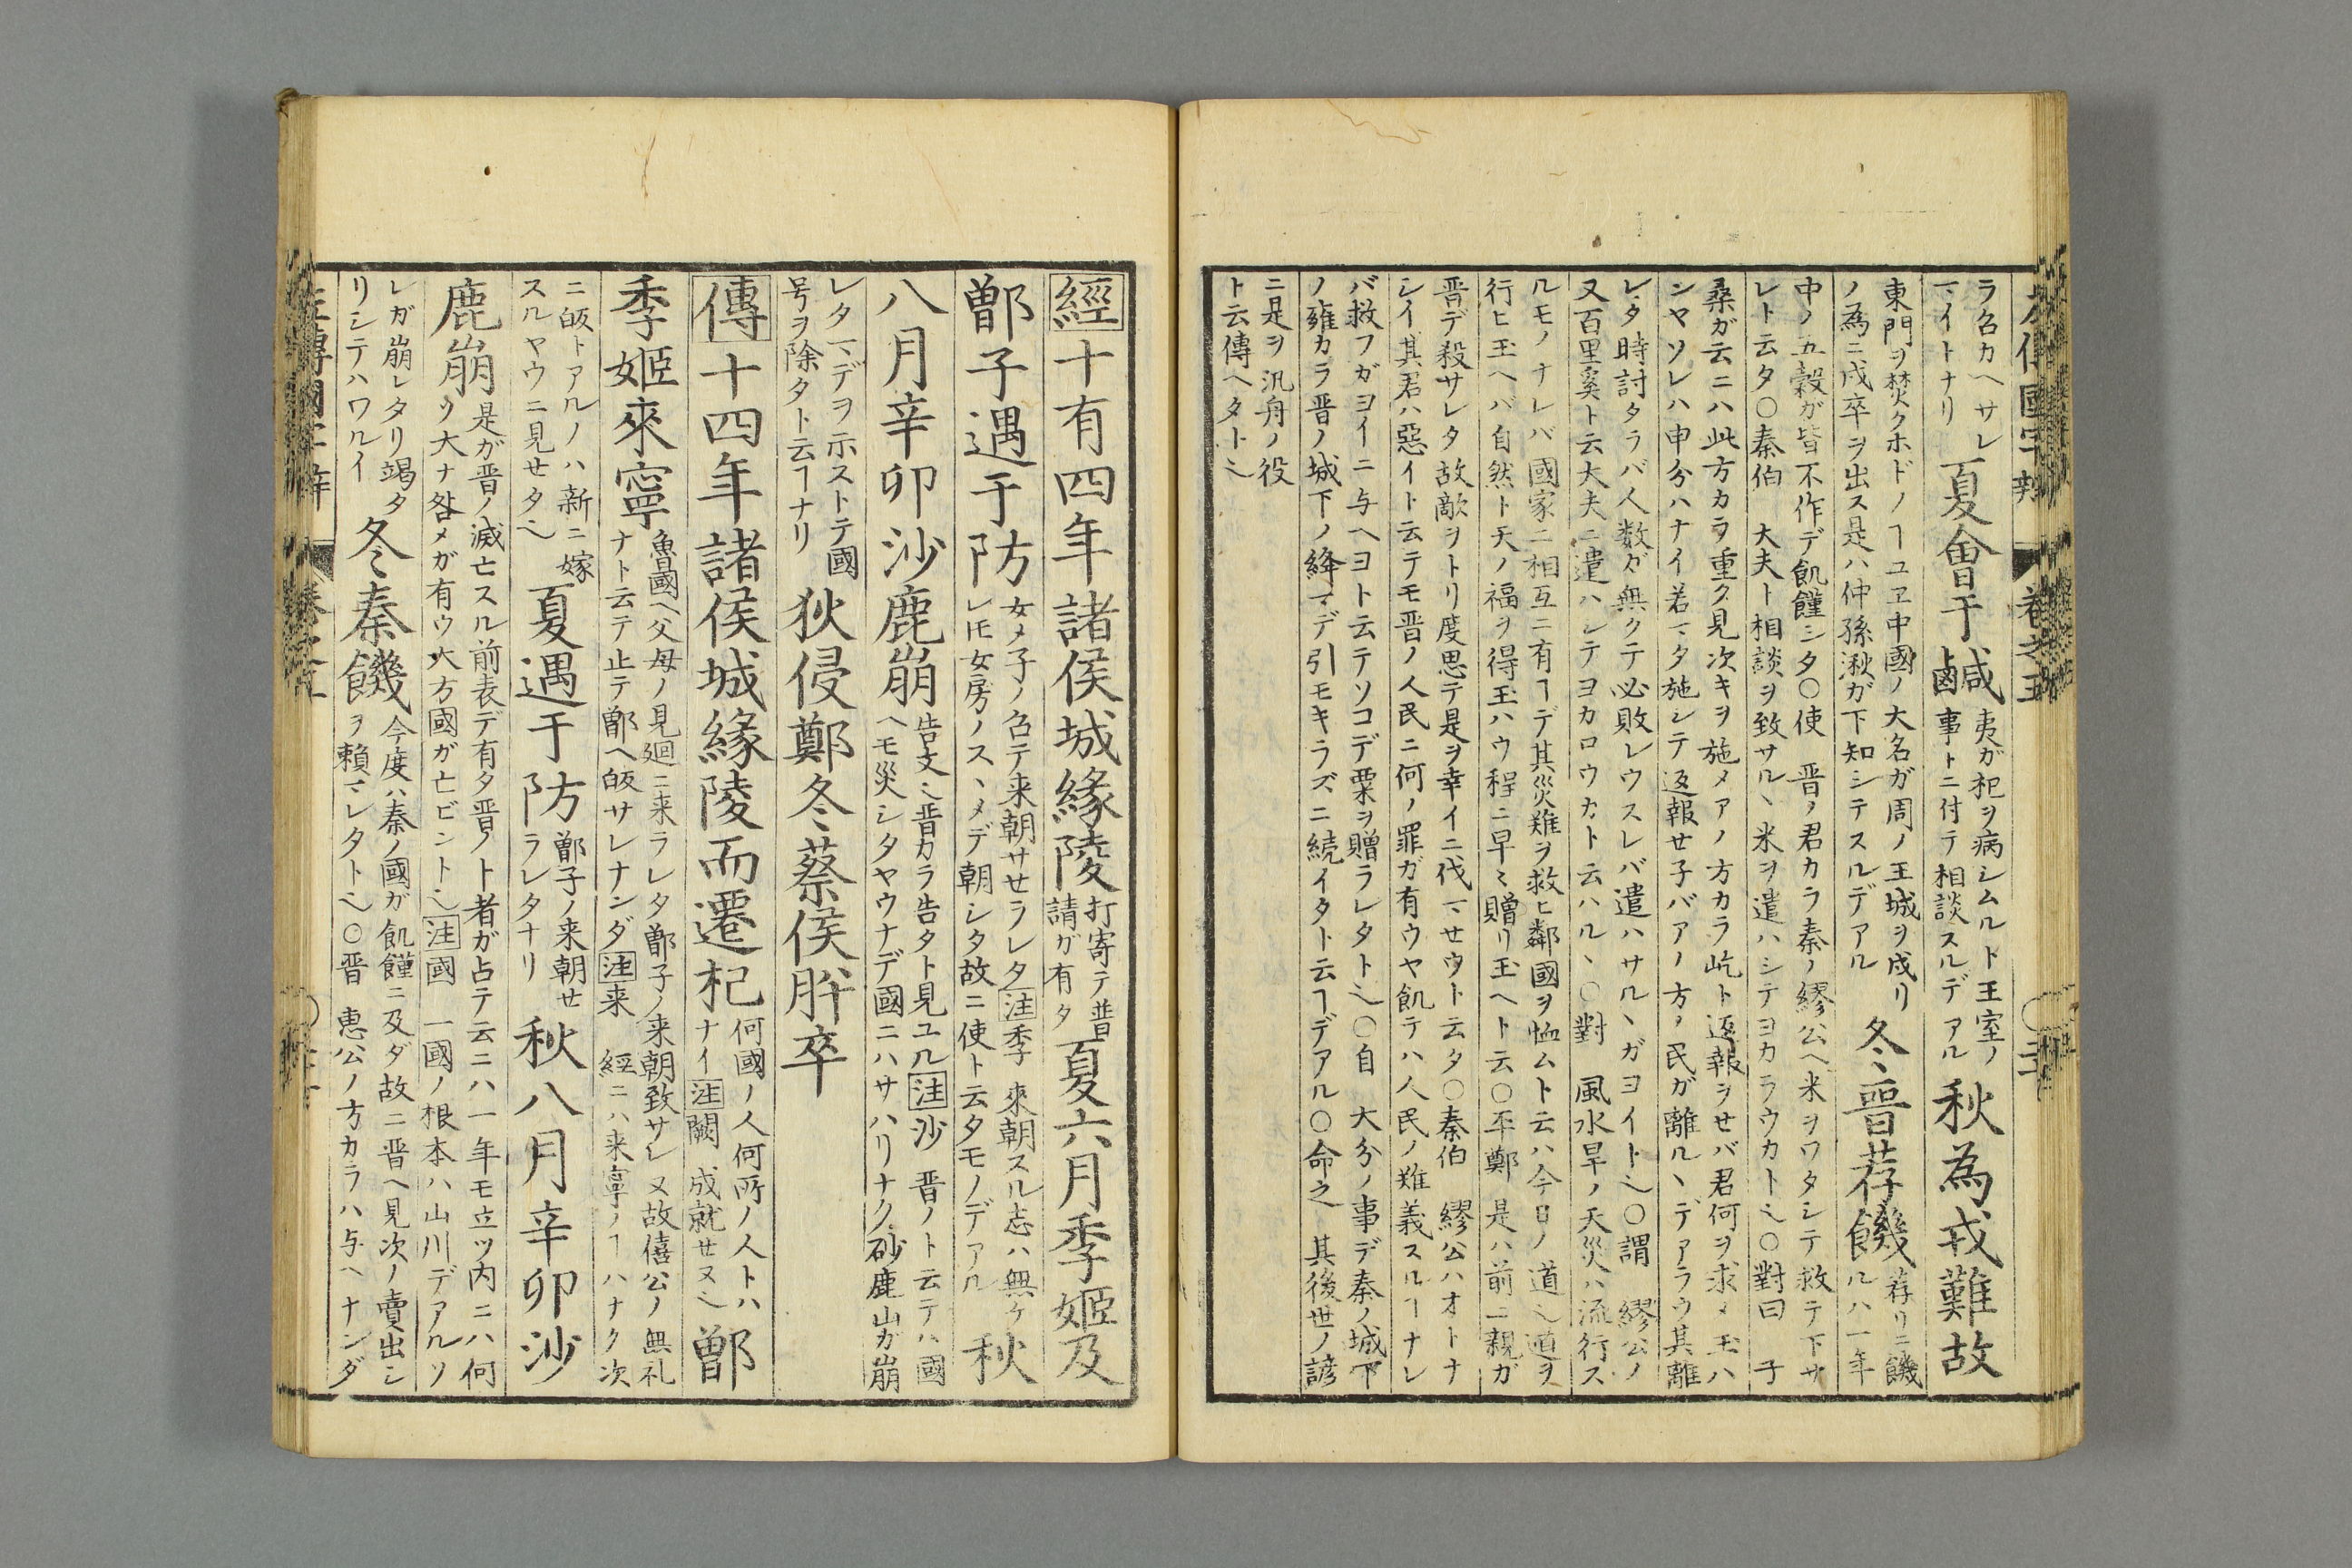 ラ名カヘサレ
マイトナリ
夏會于鹹
夷ガ杞ヲ病シムルト王室ノ
事トニ付テ相談スルデアル
秋為戎難故
東門ヲ焚クホドノヿユヱ中國ノ大名ガ周ノ王城ヲ戍リ
ノ為ニ戍卒ヲ出ス是ハ仲孫湫ガ下知シテスルデアル
冬晋荐饑
荐リニ饑
ルハ一年
中ノ五穀ガ皆不作デ飢饉シタ○使 晋ノ君カラ秦ノ繆公ヘ米ヲワタシテ救テ下サ
レト云タ○秦伯 大夫ト相談ヲ致サル丶米ヲ遣ハシテヨカラウカト也○對曰 子
桑ガ云ニハ此方カラ重ク見次キヲ施メアノ方カラ屹ト返報ヲせバ君何ヲ求メ玉ハ
ンヤソレハ申分ハナイ若マタ施シテ返報せ子バアノ方ノ民ガ離ル丶デアラウ其離
レタ時討タラバ人数ガ無クテ必敗レウスレバ遣ハサル丶ガヨイト也○謂 繆公ノ
又百里奚ト云大夫ニ遣ハシテヨカロウカト云ハル丶○對 風水旱ノ天災ハ流行ス
ルモノナレバ國家ニ相互ニ有ヿデ其災難ヲ救ヒ鄰國ヲ恤ムト云ハ今日ノ道也道ヲ
行ヒ玉ヘバ自然ト天ノ福ヲ得玉ハウ程ニ早々贈リ玉ヘト云○丕鄭 是ハ前ニ親ガ
晋デ殺サレタ故敵ヲトリ度思テ是ヲ幸イニ伐マせウト云タ○秦伯 繆公ハオトナ
シイ其君ハ惡イト云テモ晋ノ人民ニ何ノ罪ガ有ウヤ飢テハ人民ノ難義スルヿナレ
バ救フガヨイニ与ヘヨト云テソコデ粟ヲ贈ラレタト也○自 大分ノ事デ秦ノ城下
ノ雍カラ晋ノ城下ノ絳マデ引モキラズニ続イタト云ヿデアル○命之 其後世ノ諺
ニ是ヲ汎舟ノ役
ト云傳ヘタト也
經十有四年諸侯城緣陵
打寄テ普
請ガ有タ
夏六月季姬及
鄫子遇于防
女メ子ノ名テ来朝サせラレタ注季 來朝スル志ハ無ケ
レ𪜈女房ノス丶メデ朝シタ故ニ使ト云タモノデアル
秋
八月辛卯沙鹿崩
告文也晋カラ告タト見ユル注沙 晋ノト云テハ國
ヘモ災シタヤウナデ國ニハサハリナク砂鹿山ガ崩
レタマデヲ示ストテ國
号ヲ除タト云ヿナリ
狄侵鄭冬蔡侯肸卒
傳十四年諸侯城緣陵而遷杞
何國ノ人何所ノ人トハ
ナイ注闕 成就せヌ也
鄫
季姬來寧
魯國ヘ父母ノ見廻ニ来ラレタ鄫子ノ来朝致サレヌ故僖公ノ無礼
ナト云テ止テ鄫ヘ皈サレナンダ注来 經ニハ来寧ノヿハナク次
ニ皈トアルノハ新ニ嫁
スルヤウニ見せタ也
夏遇于防
鄫子ノ来朝せ
ラレタナリ
秋八月辛卯沙
鹿崩
是ガ晋ノ滅亡スル前表デ有タ晋ノト者ガ占テ云ニハ一年モ立ツ内ニハ何
ソ大ナ咎メガ有ウ大方國ガ亡ビント也注國 一國ノ根本ハ山川デアルソ
レガ崩レタリ竭タ
リシテハワルイ
冬秦饑
今度ハ秦ノ國ガ飢饉ニ及ダ故ニ晋ヘ見次ノ賣出シ
ヲ頼マレタト也○晋 惠公ノ方カラハ与ヘナンダ